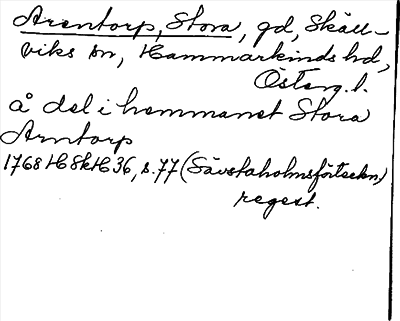 Arentorp, Stora, gd, Skäll-
viks sn, Hammarkinds hd,
Österg. l.
å del i hemmanet Stora
Arntorp
1768 H Sk H 36, s. 77 (Sävstaholmsförteckn.)
regest.